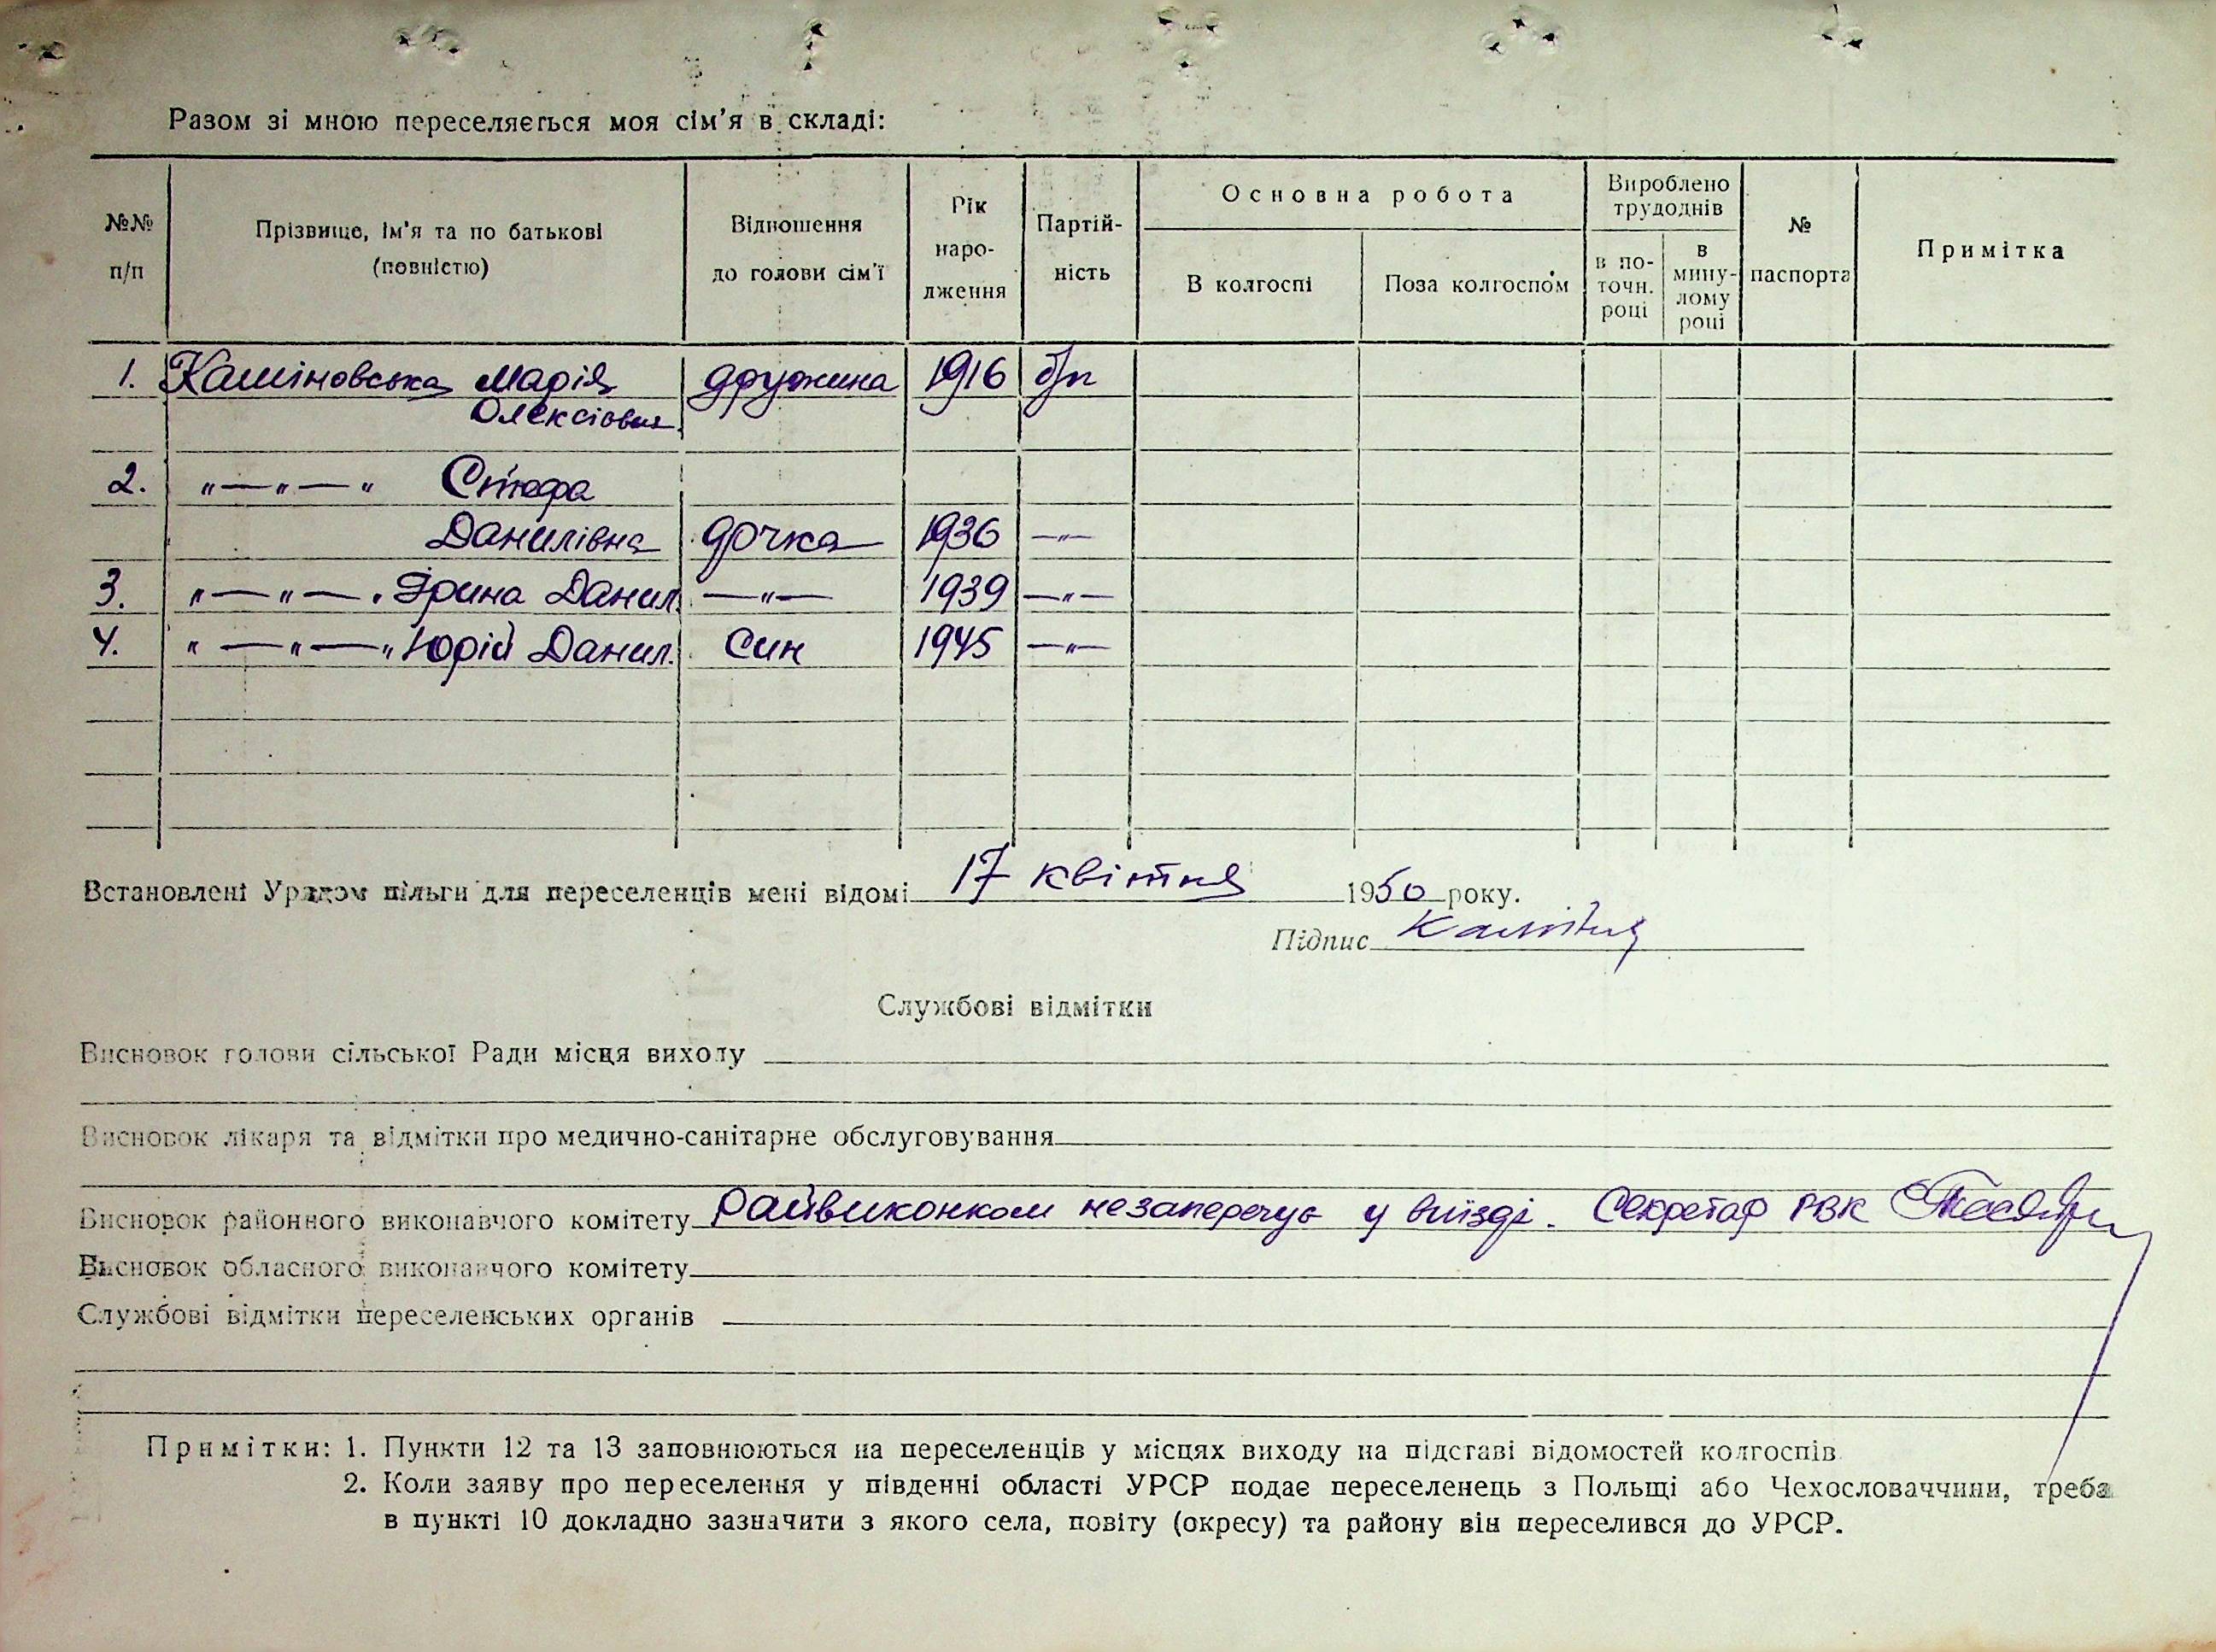 Разом зі мною переселяється моя сім'я в складі:
№№ п/п
Прізвище, ім'я та по батькові (повністю)
Відношення до голови сім'ї
Рік народження
Партійність
Основна робота
В колгоспі
Поза колгоспом
Вироблено трудоднів
в поточн. році
в минулому році
№ паспорта
Примітка
1. Каміновська Марія дружина 1916 б/п
Олексіовна
2. "—"—" Стефа
Данилівна дочка 1936 —"—
3. "—"—" Ірина Данил. —"— 1939 —"—
4. "—"—" Юрій Данил. син 1945 —"—
Встановлені Урядом пільги для переселенців мені відомі 17 квітня 1950 року.
Підпис
Службові відмітки
Висновок голови сільської Ради місця виходу
Висновок лікаря та відмітки про медично-санітарне обслуговування
Висновок районного виконавчого комітету Райвиконком незаперечує у виїзді. Секретар РВК
Висновок обласного виконавчого комітету
Службові відмітки переселенських органів
Примітки: 1. Пункти 12 та 13 заповнюються на переселенців у місцях виходу на підставі відомостей колгоспів.
2. Коли заяву про переселення у південні області УРСР подає переселенець з Польщі або Чехословаччини, треба
в пункті 10 докладно зазначити з якого села, повіту (окресу) та району він переселився до УРСР.